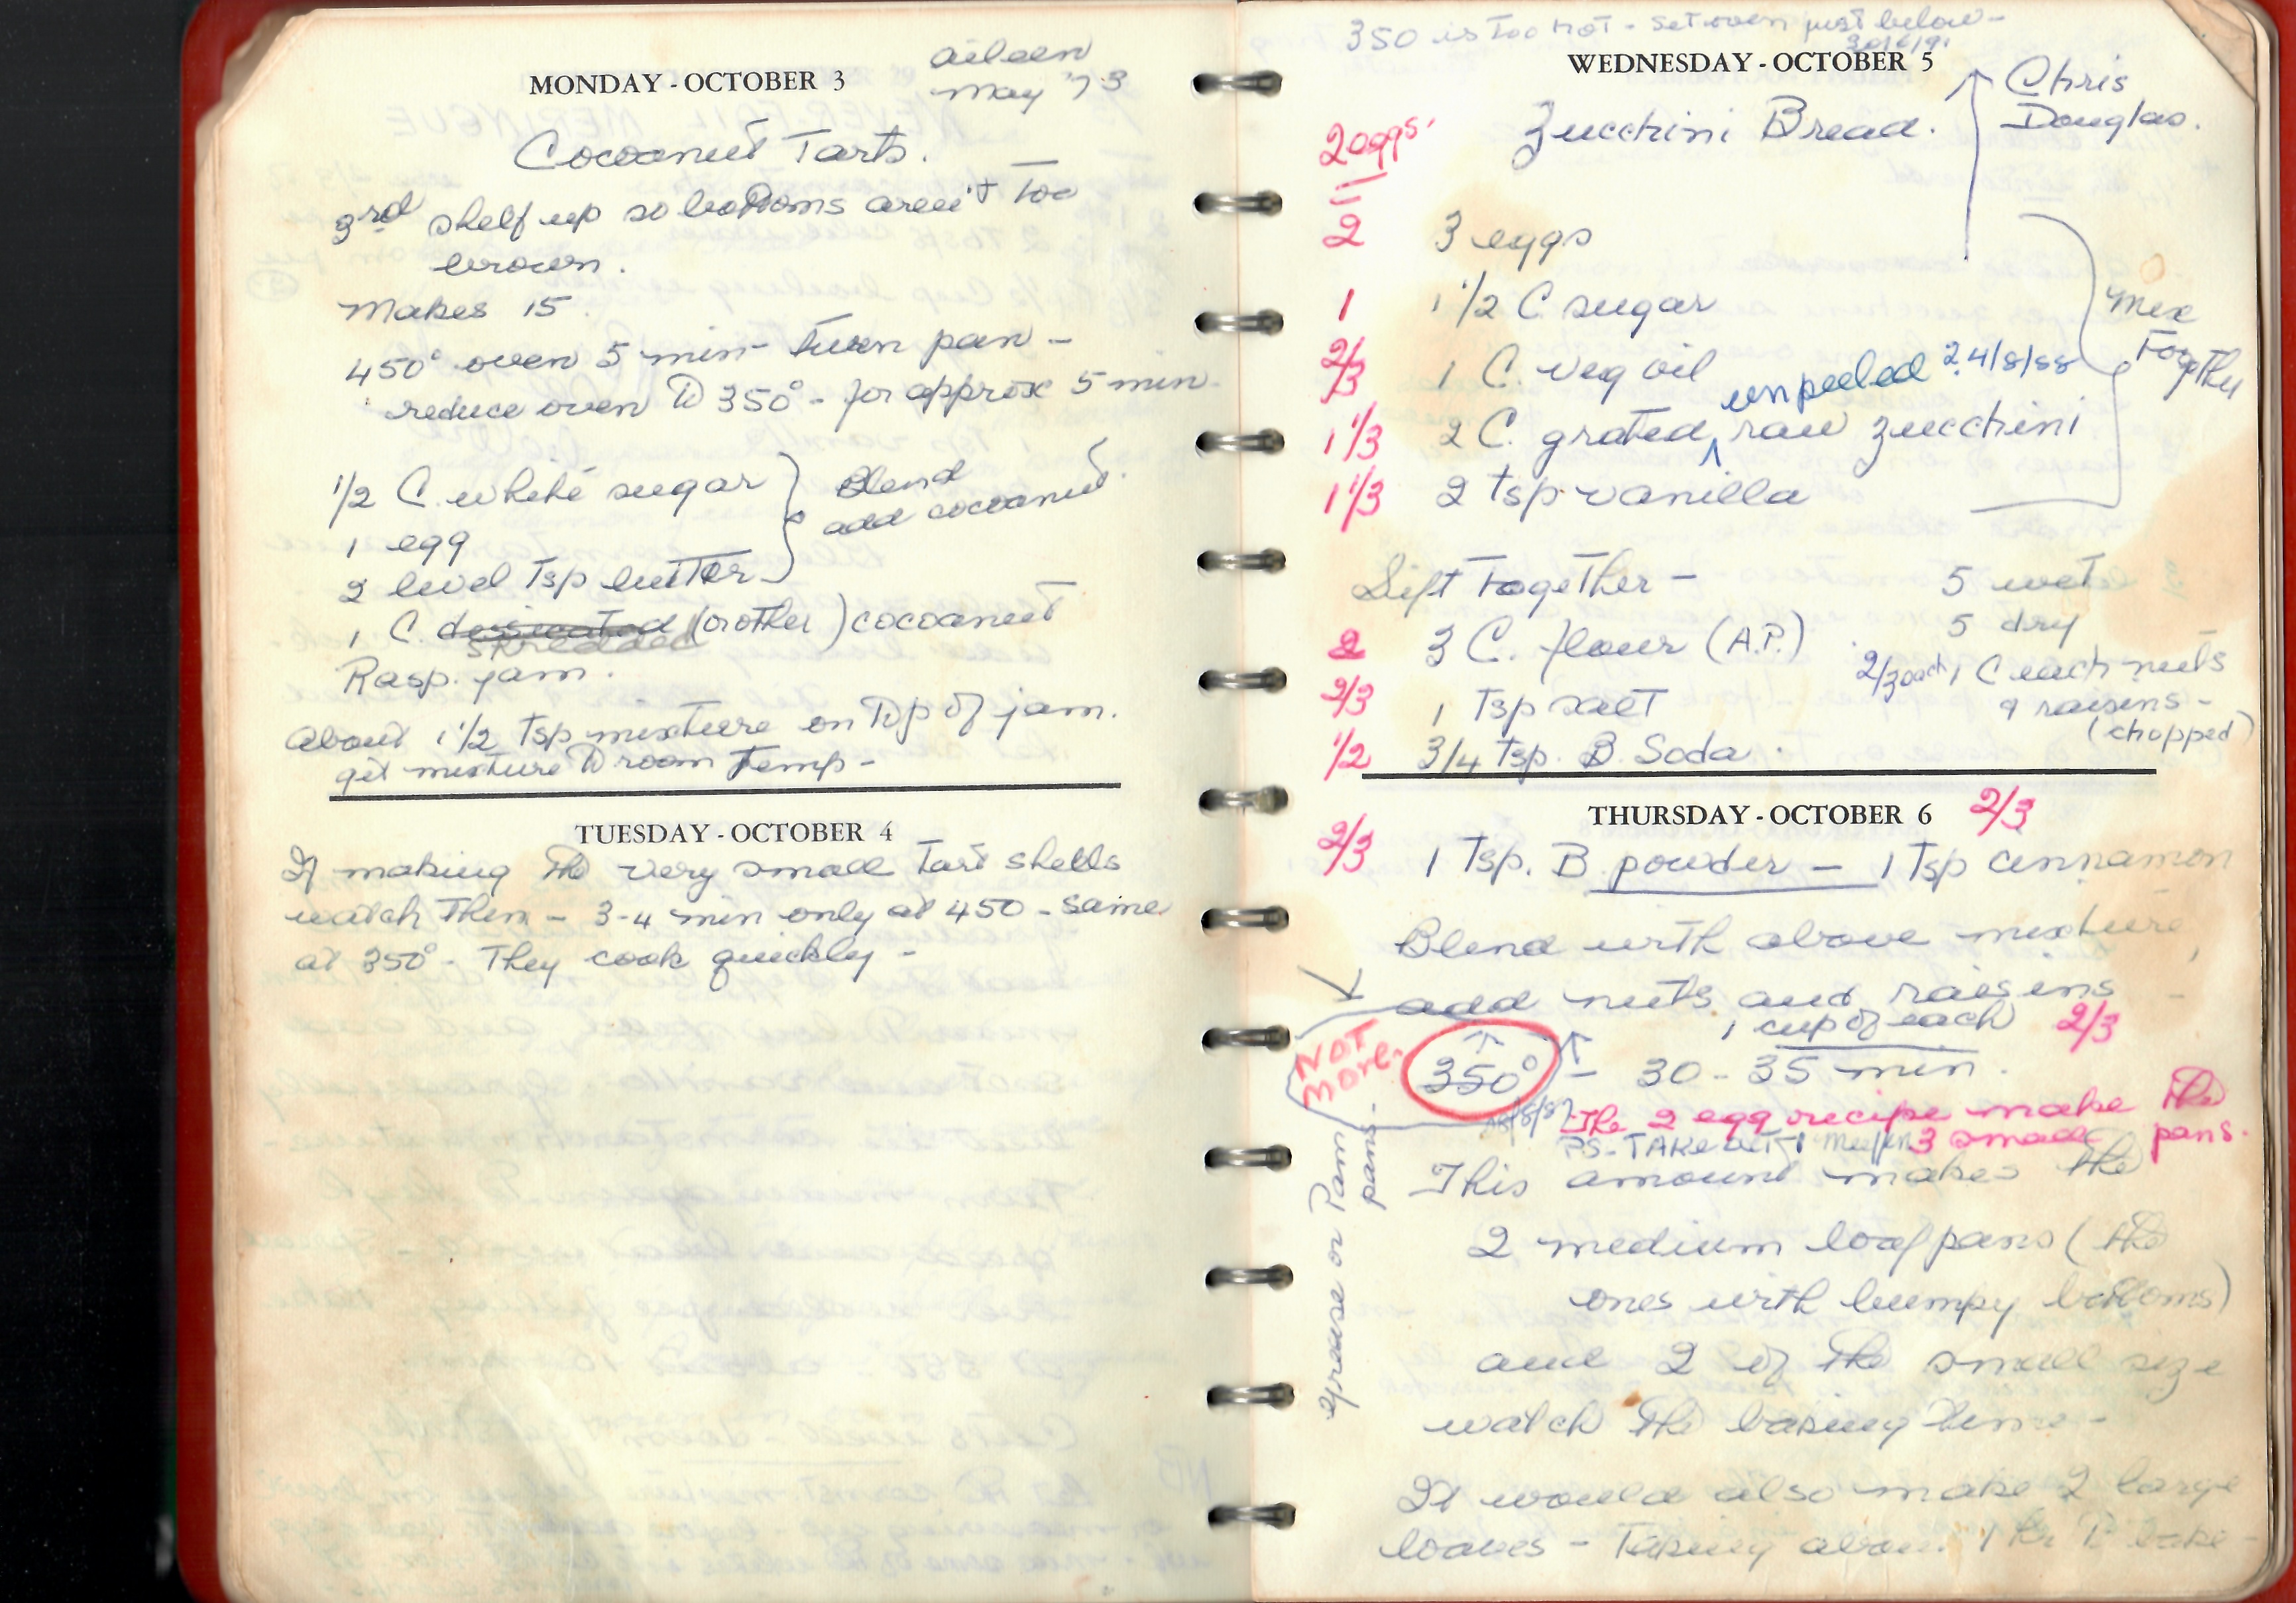 MONDAY - OCTOBER 3
Aileen
May '73
Cocoanut Tarts.
3rd shelf up so bottoms aren't too
brown.
Makes 15.
450° oven 5 min - turn pan -
reduce oven to 350° - for approx 5 min.
1/2 C. white sugar
1 egg
2 level Tsp butter
Blend
add cocoanut.
1 C. dessicated (or other) cocoanut
shredded
Rasp. jam.
About 1 1/2 tsp mixture on top of jam.
get mixture to room temp -
TUESDAY - OCTOBER 4
If making the very small tart shells
watch them - 3-4 min only at 450 - same
at 350° - They cook quickly -
350 is too hot - set oven just below -
WEDNESDAY - OCTOBER 5
Chris
Douglas.
Zucchini Bread.
2 eggs.
2 3 eggs
1 1 1/2 C sugar
2/3 1 C. veg oil
unpeeled 24/8/88
1 1/3 2 C. grated raw zucchini
1 1/3 2 tsp vanilla
Mix
Together
Sift Together -
5 wet
5 dry
2 3 C. flour (A.P.)
2/3 each 1 C each nuts
& raisins -
(chopped)
2/3 1 Tsp salt
1/2 3/4 tsp. B. Soda.
THURSDAY - OCTOBER 6
2/3
2/3 1 Tsp. B. powder - 1 Tsp cinnamon
Blend with above mixture,
add nuts and raisins -
1 cup of each 2/3
NOT
MORE.
350° - 30 - 35 min.
The 2 egg recipe make the
3 small pans.
PS - TAKE OUT 1
This amount makes the
2 medium loaf pans (the
ones with bumpy bottoms)
and 2 of the small size
watch the baking time -
It would also make 2 large
loaves - Taking about 1 hr to bake -
grease or Pam
pans.